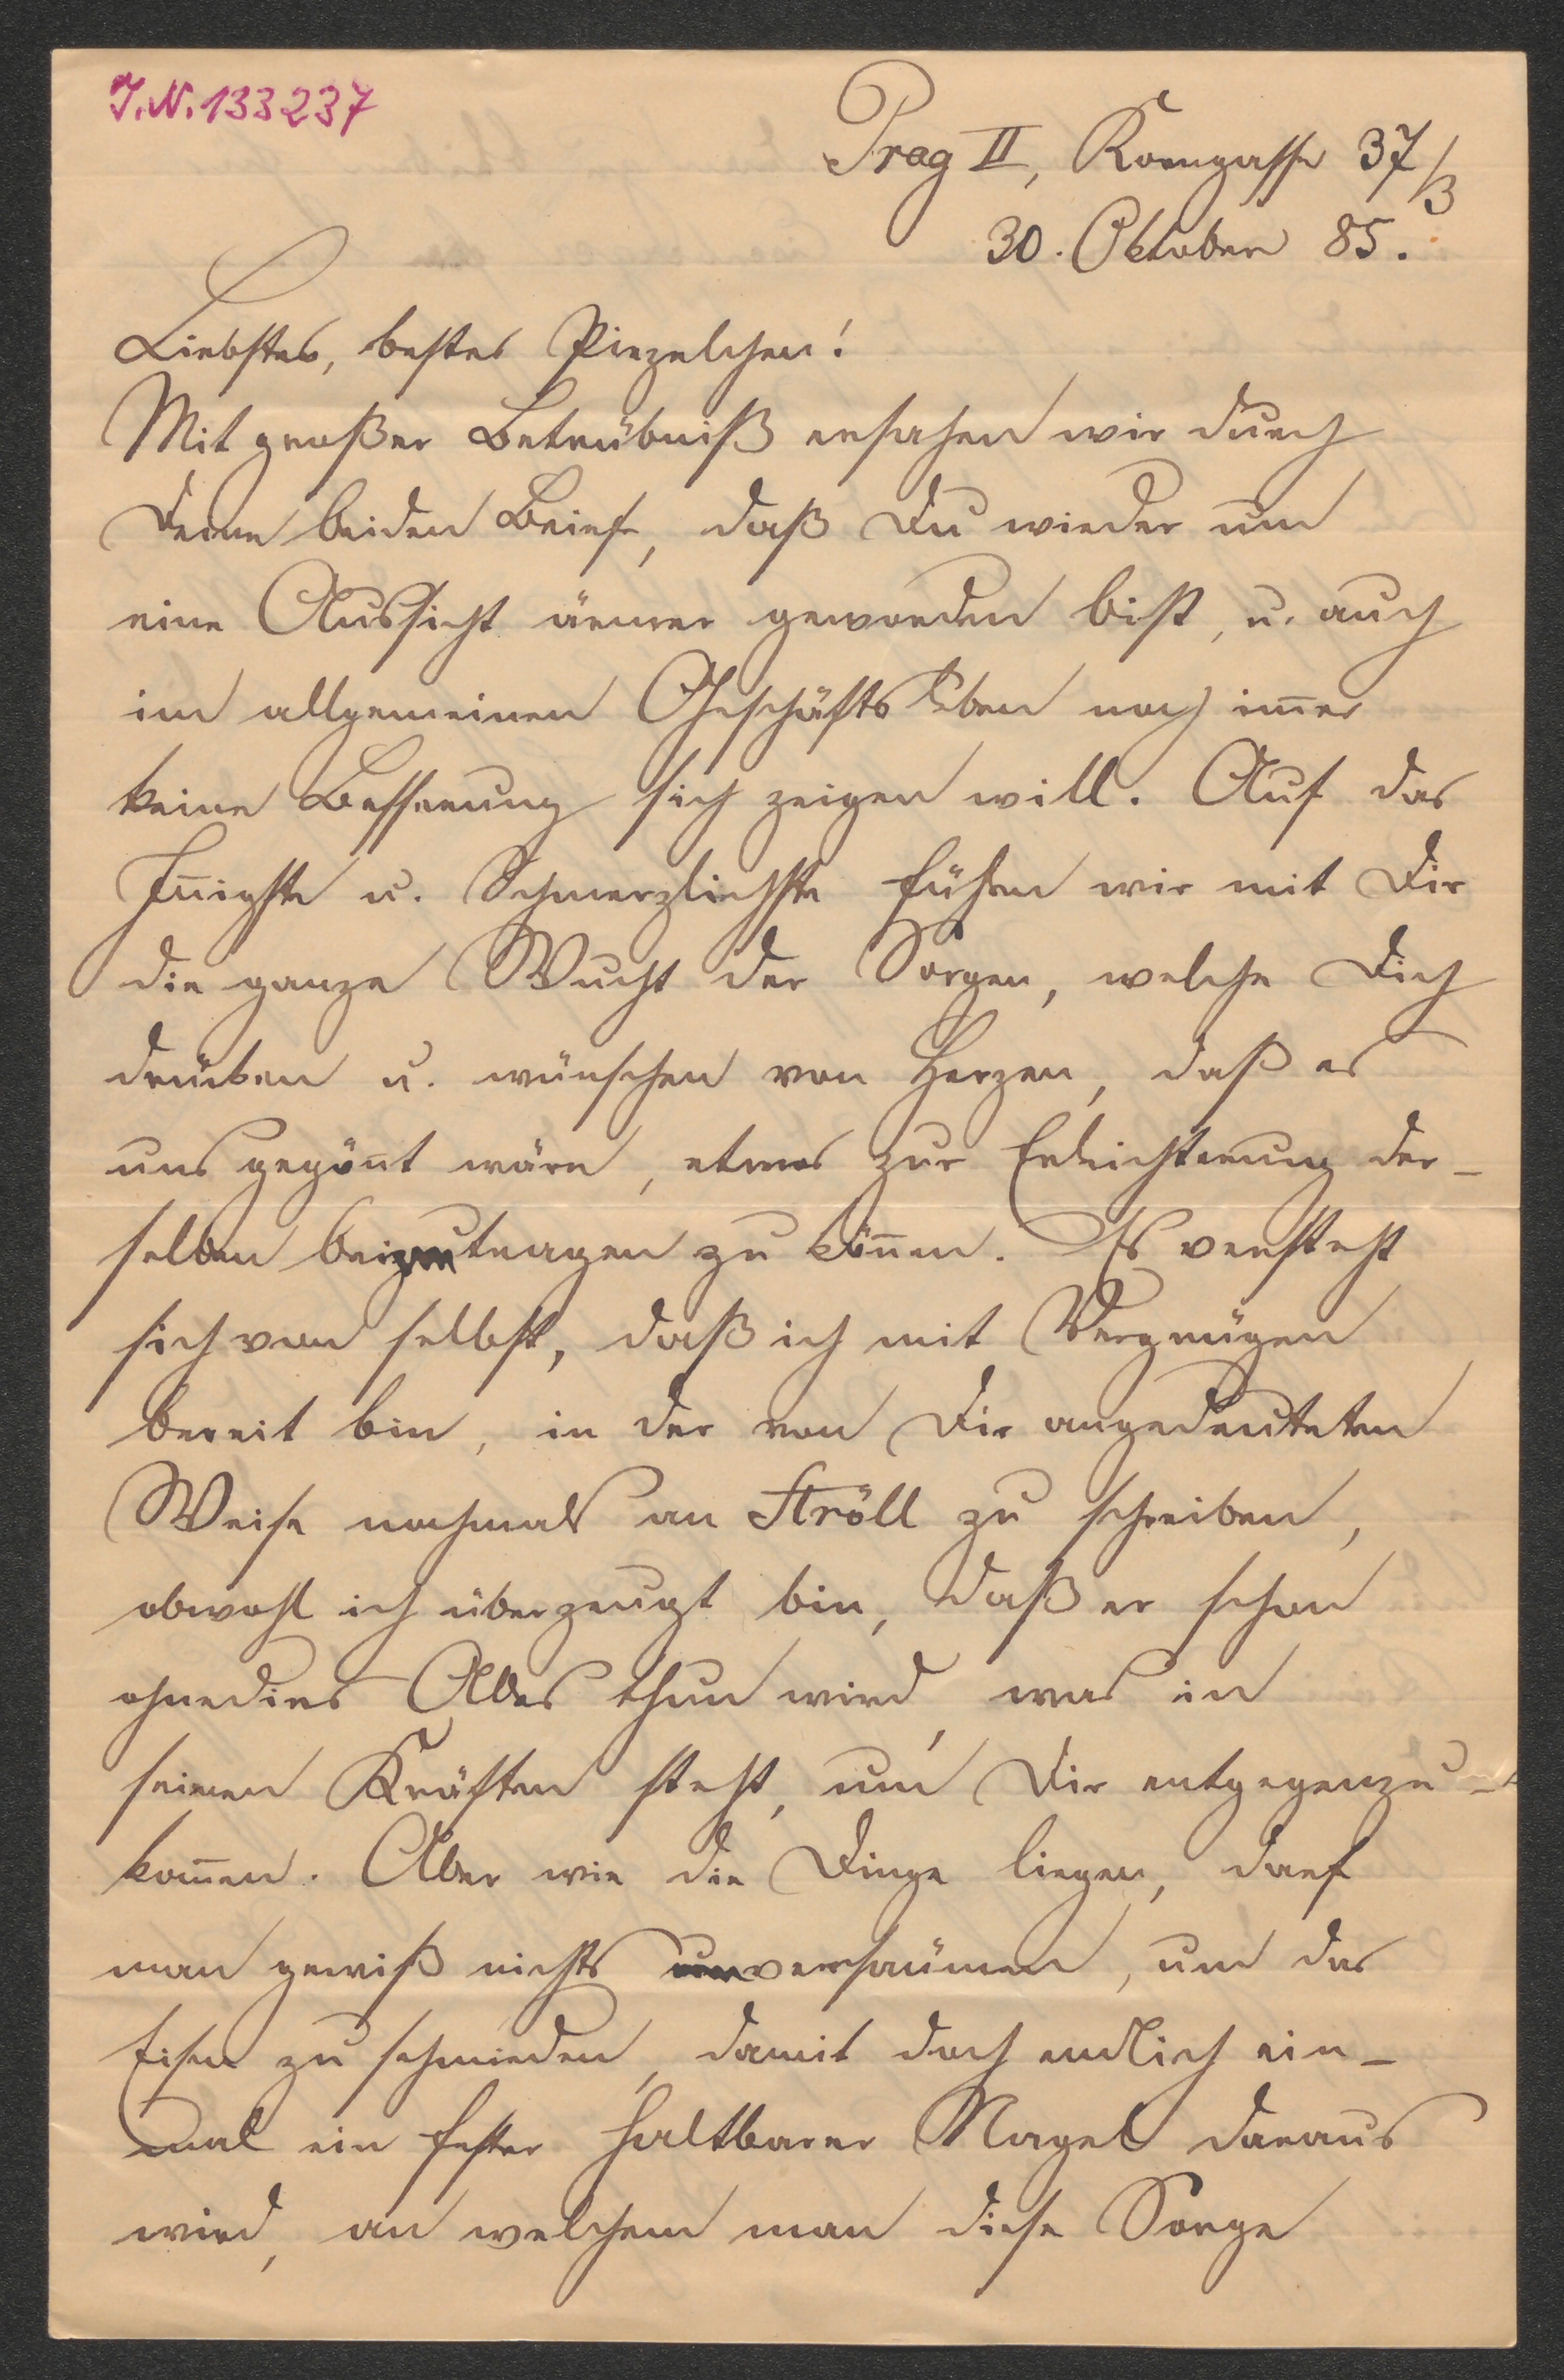 J.N. 133237
Prag II, Korngasse 37/3
30. Oktober 85.
Liebstes, bestes Piezelchen!
Mit großer Betrübniß ersahen wir durch
Deine beiden Briefe, daß Du wieder um
eine Aussicht ärmer geworden bist, u. auch
im allgemeinen Geschäftsleben noch im̅er
keine Besserung sich zeigen will. Auf das
In̅igste u. Schmerzlichste fühlen wir mit Dir
die ganze Wucht der Sorgen, welche Dich
drücken u. wünschen von Herzen, daß es
uns gegön̅t wäre, etwas zur Erleichterung der-
selben beizutragen zu kön̅en. Es versteht
sich von selbst, daß ich mit Vergnügen
bereit bin, in der von Dir angedeuteten
Weise nochmals an Ströll zu schreiben,
obwohl ich überzeugt bin, daß er schon
ohnedies Alles thun wird, was in
seinen Kräften steht, um Dir entgegenzu-
kom̅en. Aber wie die Dinge liegen, darf
man gewiß nichts versäumen, um das
Eisen zu schmieden, damit doch endlich ein-
mal ein fester haltbarer Nagel daraus
wird, an welchem man diese Sorge